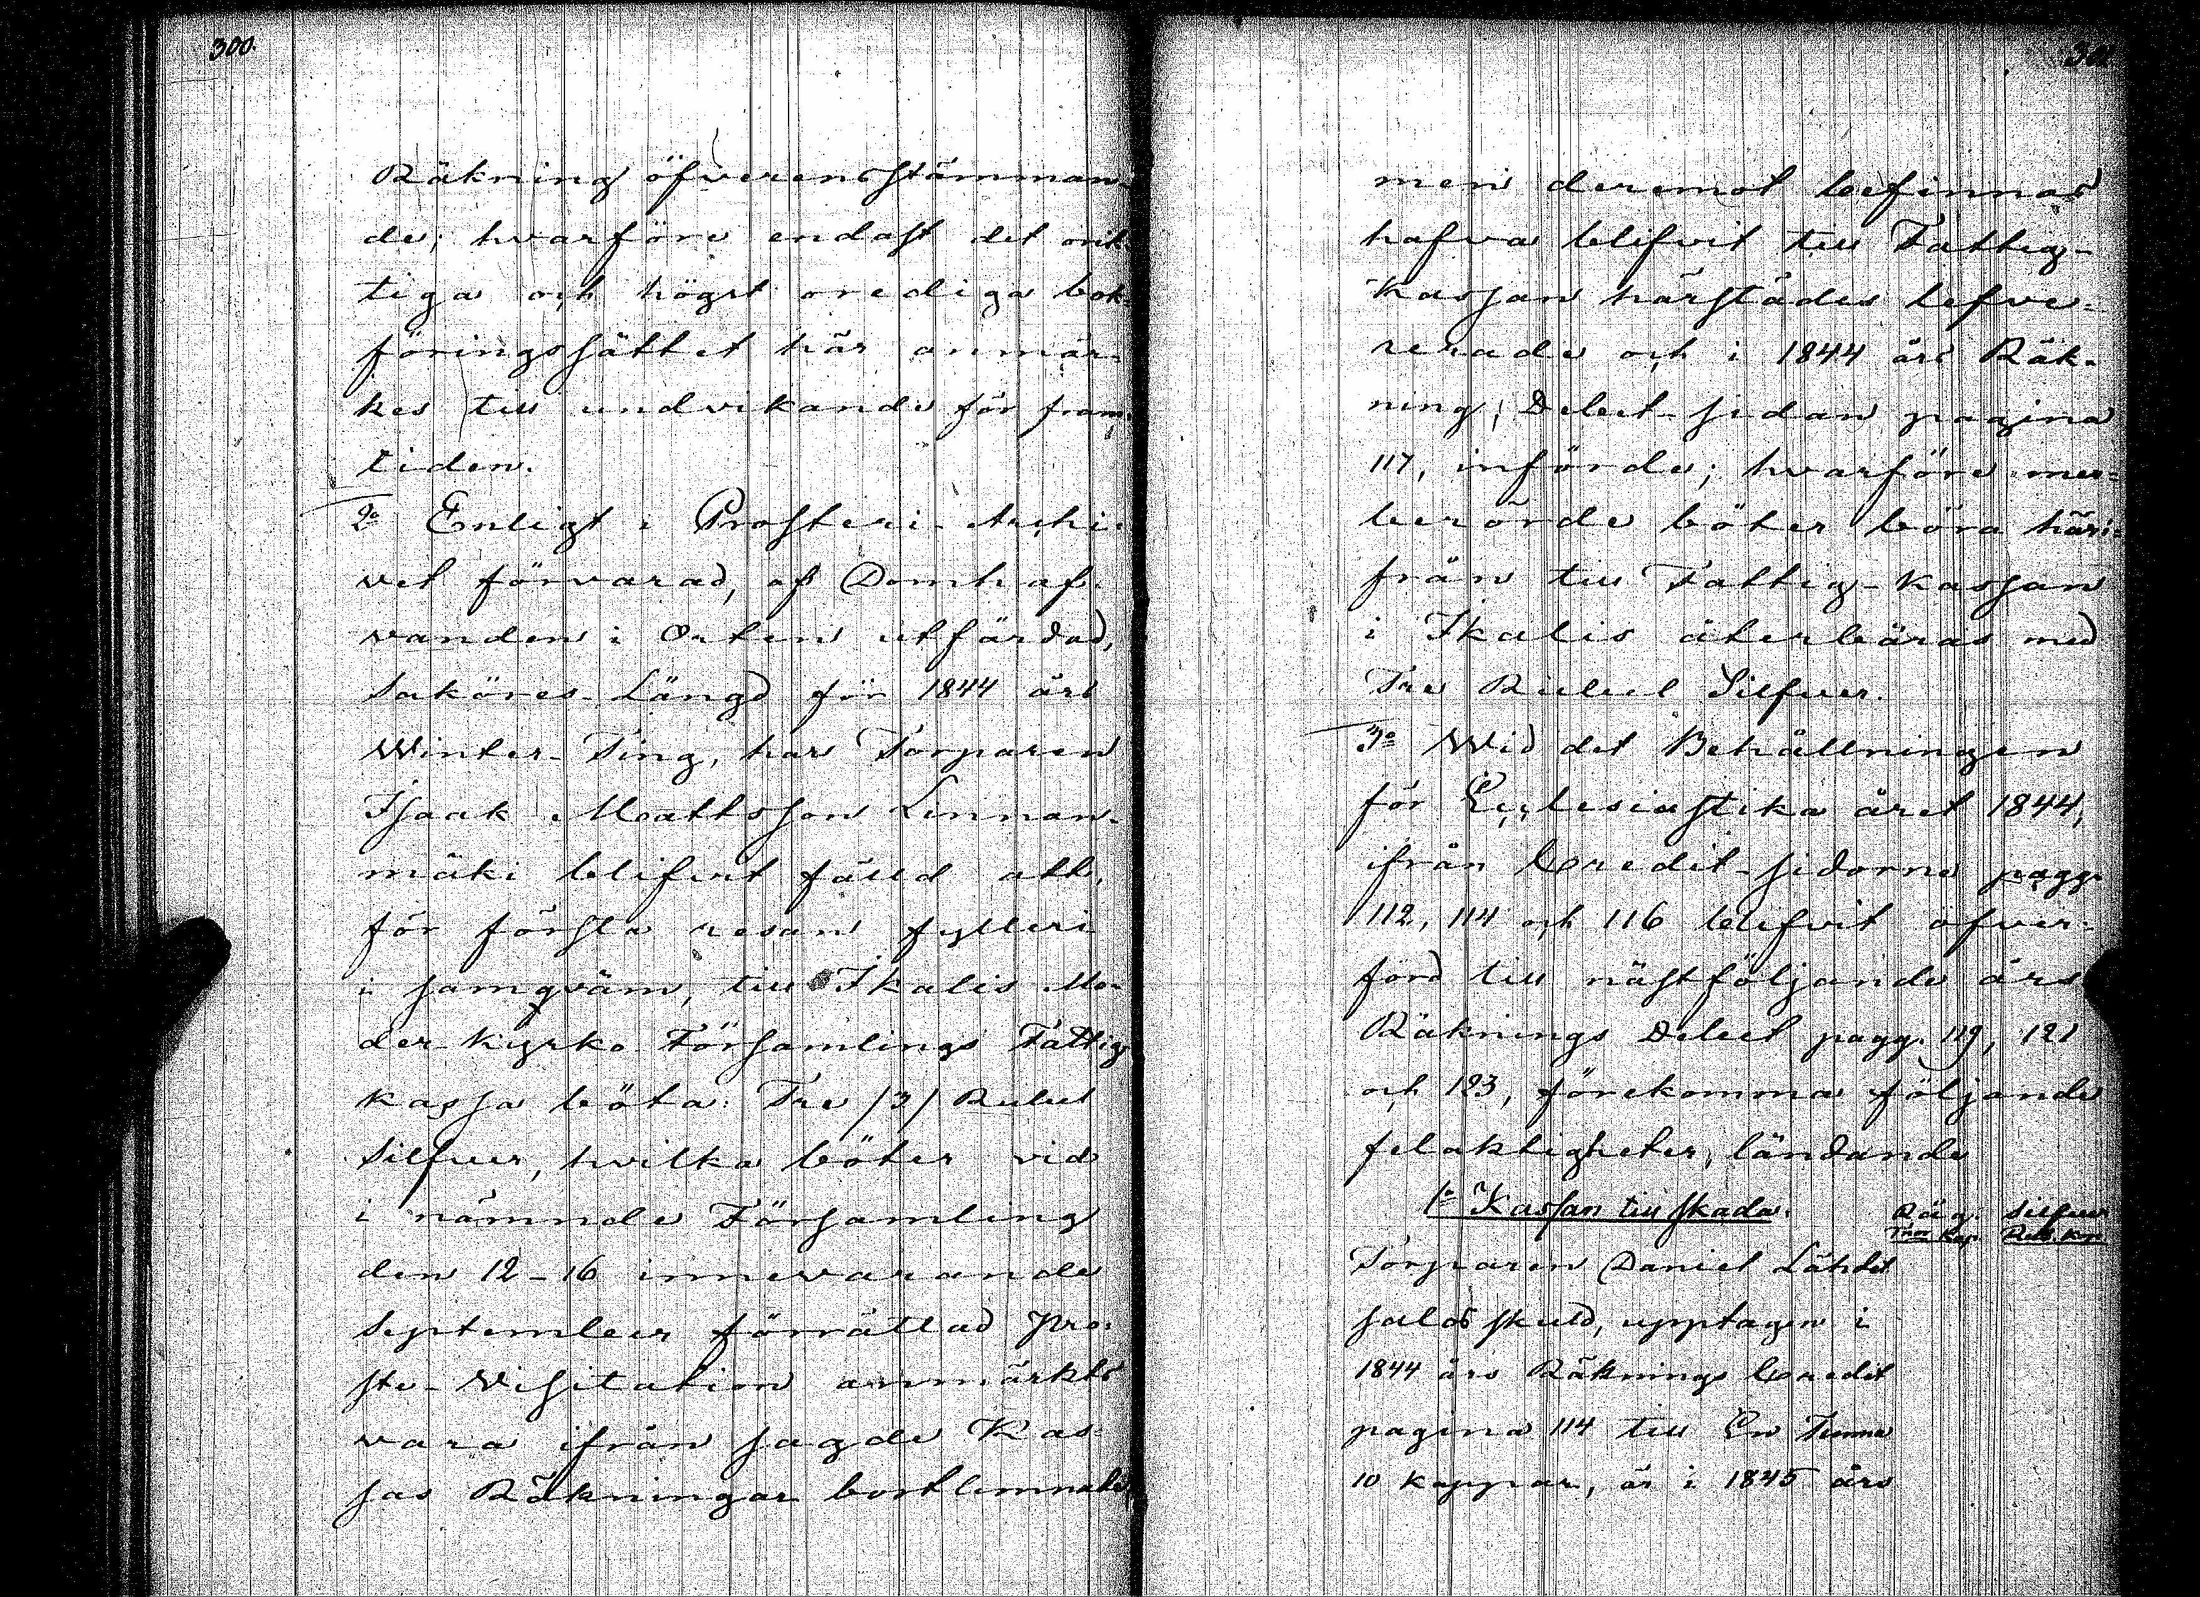 300.
Räkning öfverensstämman-
de; hvarföre endast det orik
tiga och högst orediga bok
föringssättet här anmär-
kes till undvikande för fram-
tiden.
2o Enligt i Prosteri-Archi-
vet förvarad, af Domhaf-
vanden i Orten utfärdad,
Saköres-Längd för 1844 års
Winter-Ting, har Torparen
Isaak Mattsson Linnan-
mäki blifvit fälld att,
för första resan fylleri
i samqväm, till Ikalis Mo-
der-Kyrko-Församlings Fattig-
kassa böta: Tre /3/ Rubel
Silfver, hvilka böter vid
i nämnde Församling
den 12-16 innevarande
September förrättad Pro-
ste-Visitation anmärkts
vara ifrån sagde Kas-
sas Räkningar bortlemnade,
301
men deremot befinnas
hafva blifvit till Fattig-
Kassan härstädes lefve-
rerade och i 1844 års Räk-
ning, Debet-sidan pagina
117, införde; hvarföre mer-
berörde böter böra häri-
från till Fattig-Kassan
i Ikalis återbäras med
Tre Rubel Silfver.
3o Wid det Behållningen
för Ecclesiastika året 1844,
ifrån Credit-sidorna pagg.
112, 114 och 116 blifvit öfver-
förd till nästföljande års
Räknings Debet pagg. 119, 121
och 123, förekomma följande
felaktigheter, ländande
1o Kassan till skada. Råg. Silfver
Tnor Kap. Rub. Kop.
Torparen Daniel Lähdet
salos skuld, upptagen i
1844 års Räknings Credit
pagina 114 till En Tunna
10 kappar, är i 1845 års